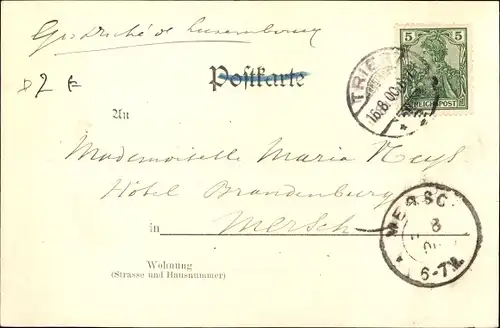 Gr. Duché de Luxembourg
Postkarte
5 5
REICHSPOST
TRIER
16.8.00
An
Mademoiselle Maria Neys
Hôtel Brandenburg
in Mersch
MERSC
8
6-7N.
Wohnung
(Strasse und Hausnummer)